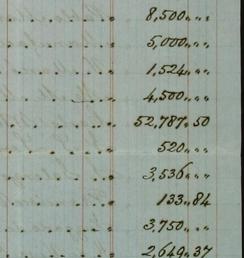 8,500 „ „
5,000 „ „
1,524 „ „
4,500 „ „
52,787 „ 50
520 „ „
3,536 „ „
133 „ 84
3,750 „ „
2,649 „ 37